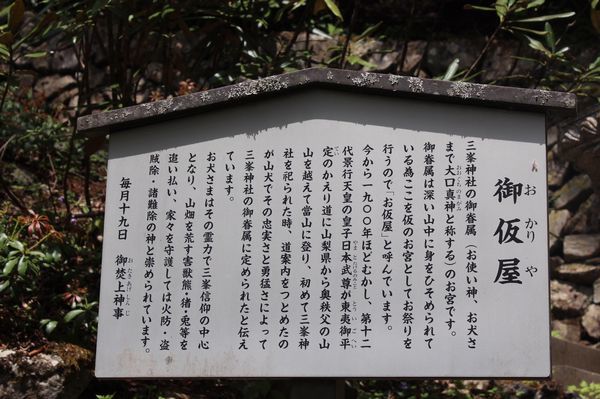 御仮屋
おかりや
三峯神社の御眷属(お使い神、お犬さ
まで大口真神と称する)のお宮です。
おおくちのまかみ
御眷属は深い山中に身をひそめられて
いる為ここを仮のお宮としてお祭りを
行うので「お仮屋」と呼んでいます。
今から一九〇〇年ほどむかし、第十二
代景行天皇の皇子日本武尊が東夷御平
やまとたけるのみこと とうい ごへい
定のかえり道に山梨県から奥秩父の山
てい
山を越えて當山に登り、初めて三峯神
社を祀られた時、道案内をつとめたの
が山犬でその忠実さと勇猛さによって
三峯神社の御眷属に定められたと伝え
ています。
お犬さまはその霊力で三峯信仰の中心
となり、山畑を荒す害獣熊・猪・兎等を
追い払い、家々を守護しては火防・盗
賊除・諸難除の神と崇められています。
毎月十九日 御焚上神事
おたきあげしんじ